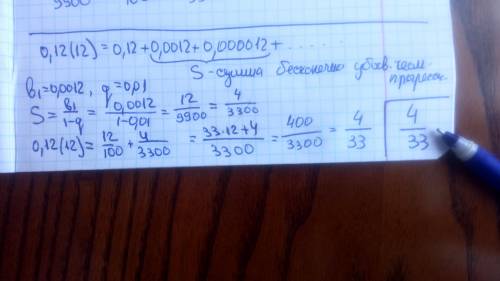 9900
0,12(12) = 0,12 + 0,0012 + 0,000012 + ......
S - сумма бесконечно убыв. геом. прогресси.
b₁=0,0012, q=0,01
S = b₁/1-q = 0,0012/1-0,01 = 12/9900 = 4/3300
0,12(12) = 12/100 + 4/3300 = 33·12+4/3300 = 400/3300 = 4/33 4/33